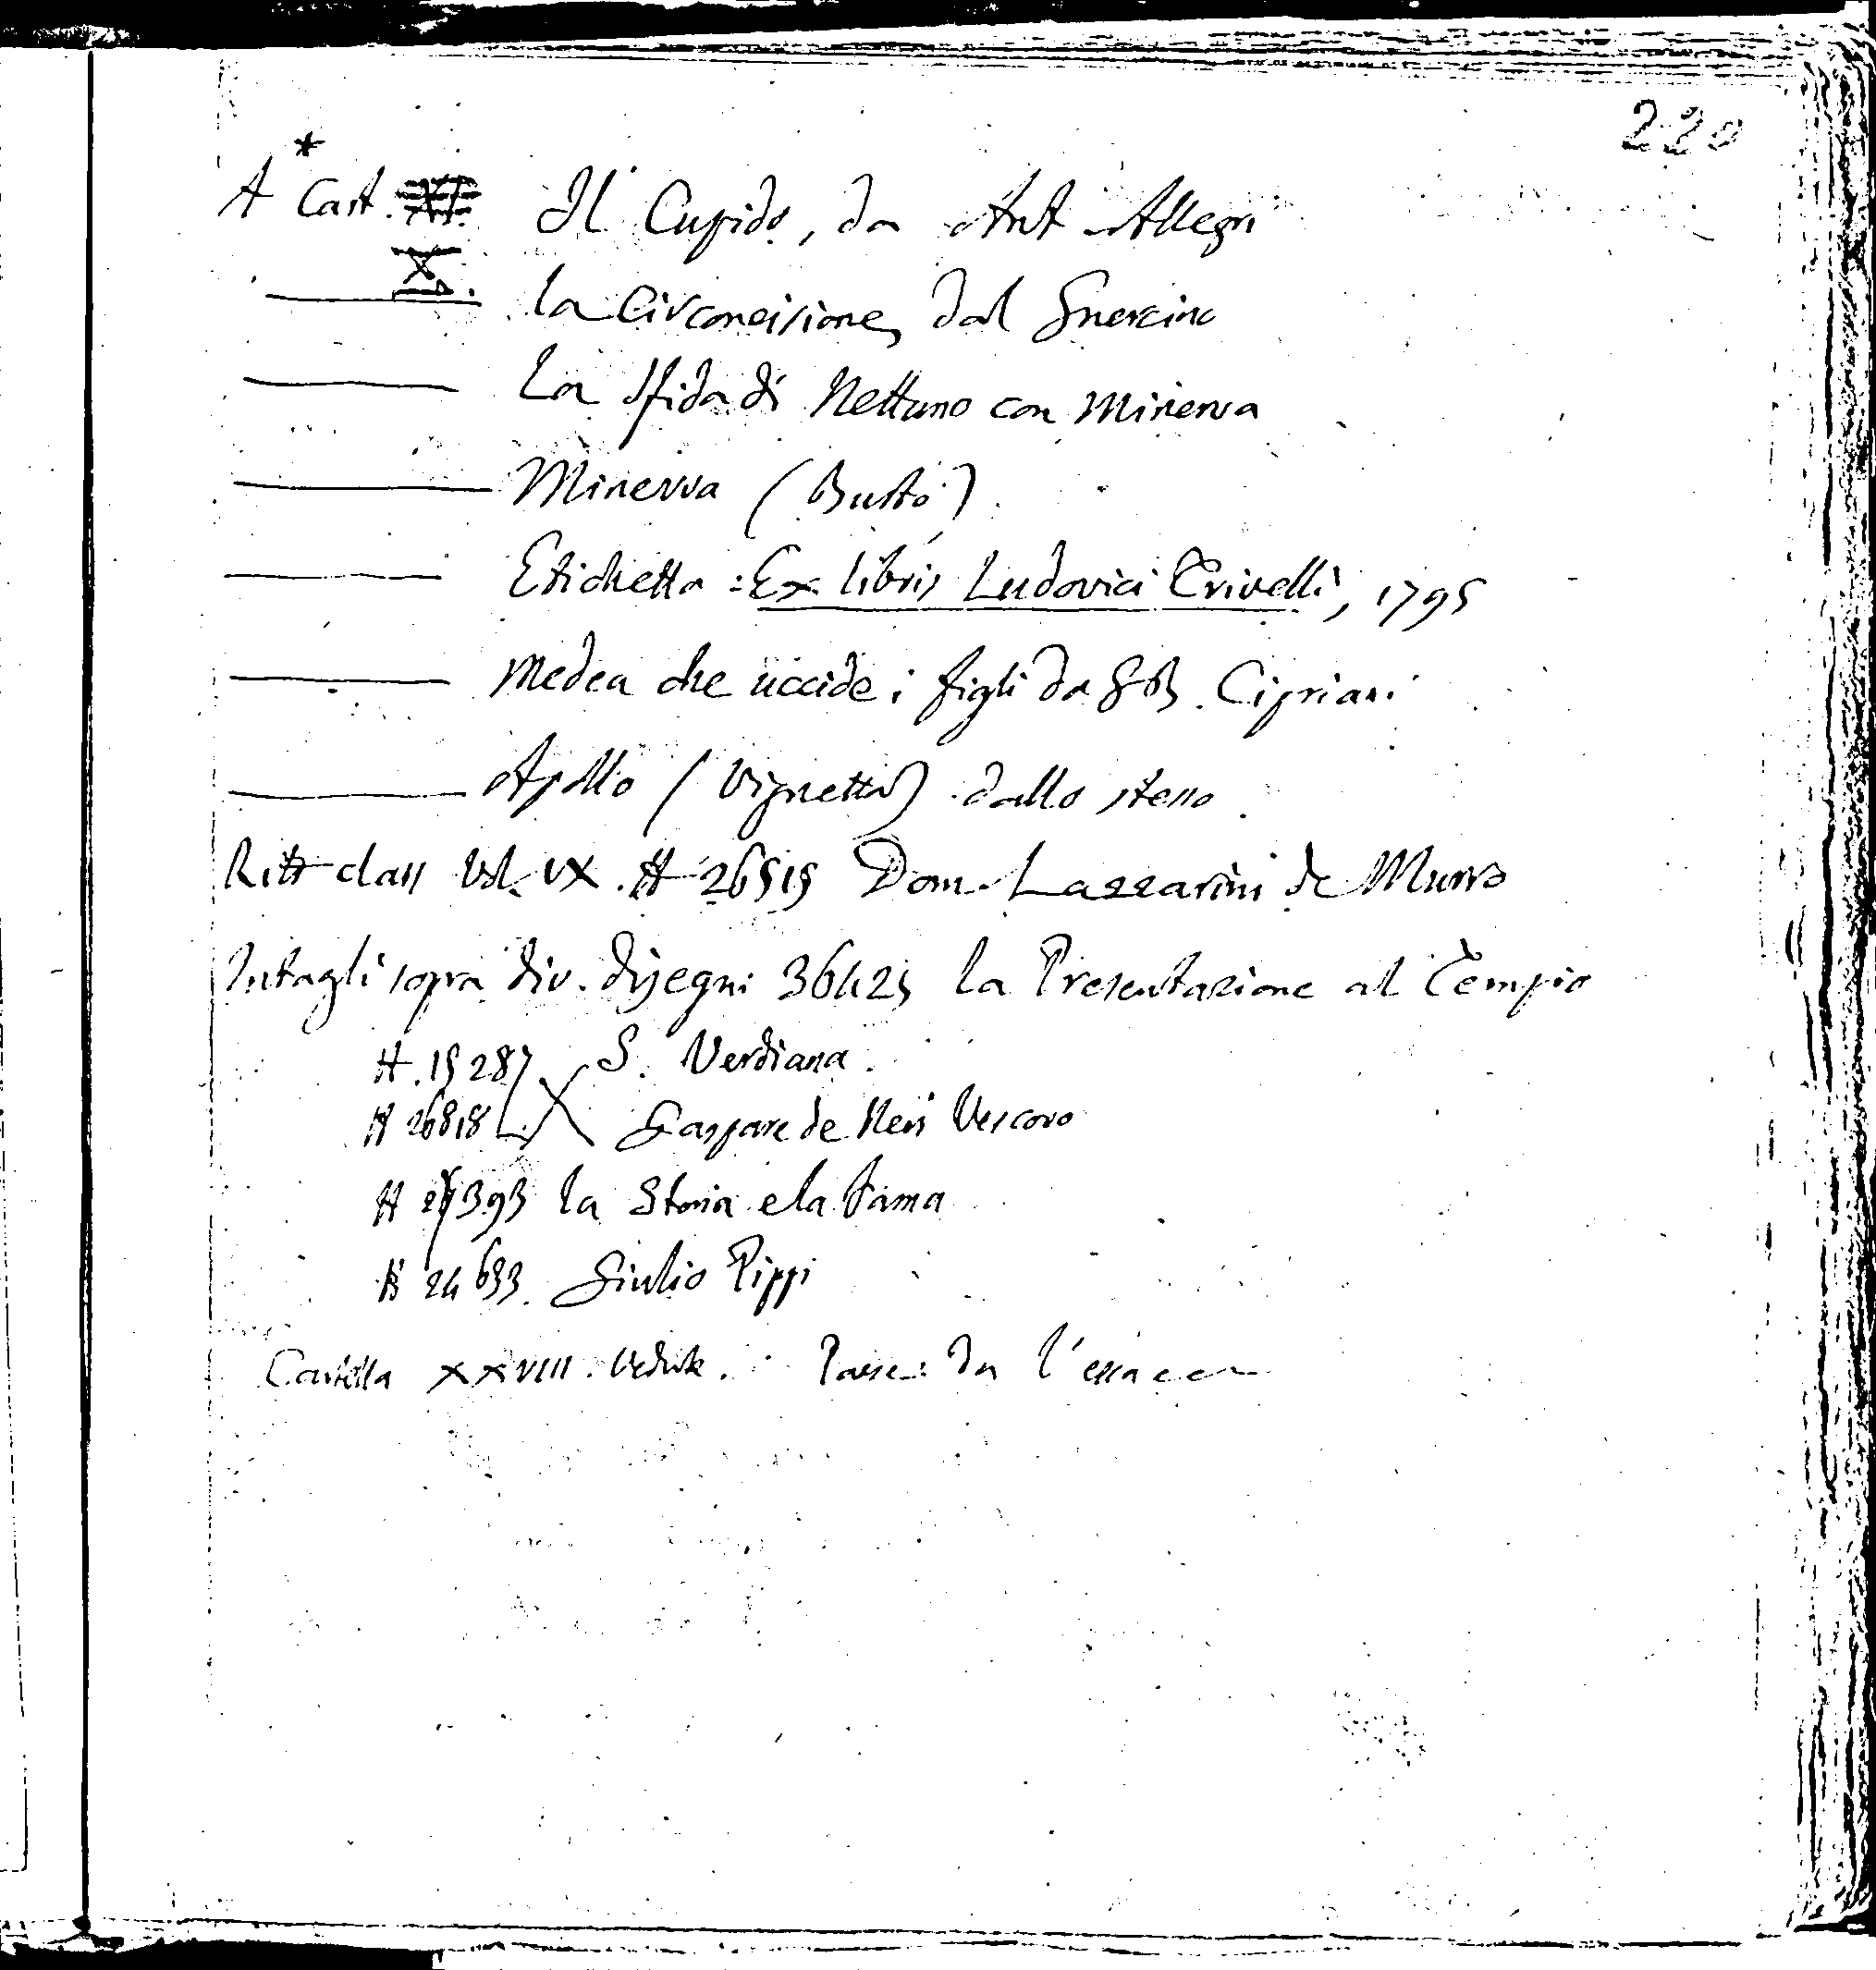 220
*
A Cart. XI. Il Cupido, da Ant Allegri
X. la Circoncisione, dal Guercino
La sfida di Nettuno con Minerva
Minerva (Busto)
Etichetta: Ex libris Ludovici Crivelli, 1795
Medea che uccide i figli da GB. Cipriani
Apollo (Vignetta) dallo stesso
Ritt class Vol. IX. A 26519 Dom. Lazzarini de Murro
Intagli sopra div. disegni 36425 la Presentazione al Tempio
A. 15287 S. Verdiana
A 26818 Gaspare de Neri Vescovo
A 393 la Storia e la Fama
24633. Giulio Pippi
Cartella XXVIII. Vedute. da l'